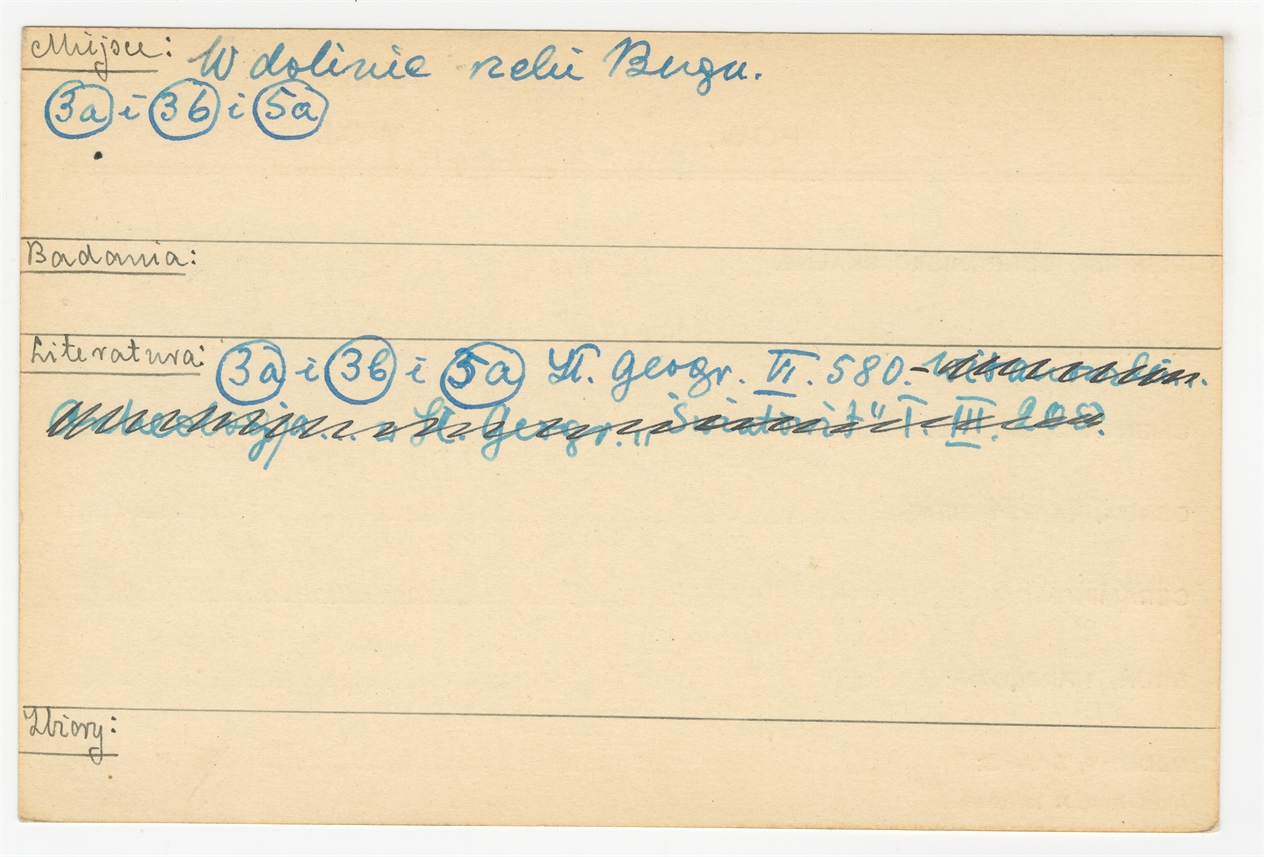 Miejsce: W dolinie rzeki Bugu.
3a i 3b i 5a
Badania:
Literatura: 3a i 3b i 5a Sł. Geogr. VI. 580. -
Sł. Geogr. „ T. III. 208.
Zbiory: